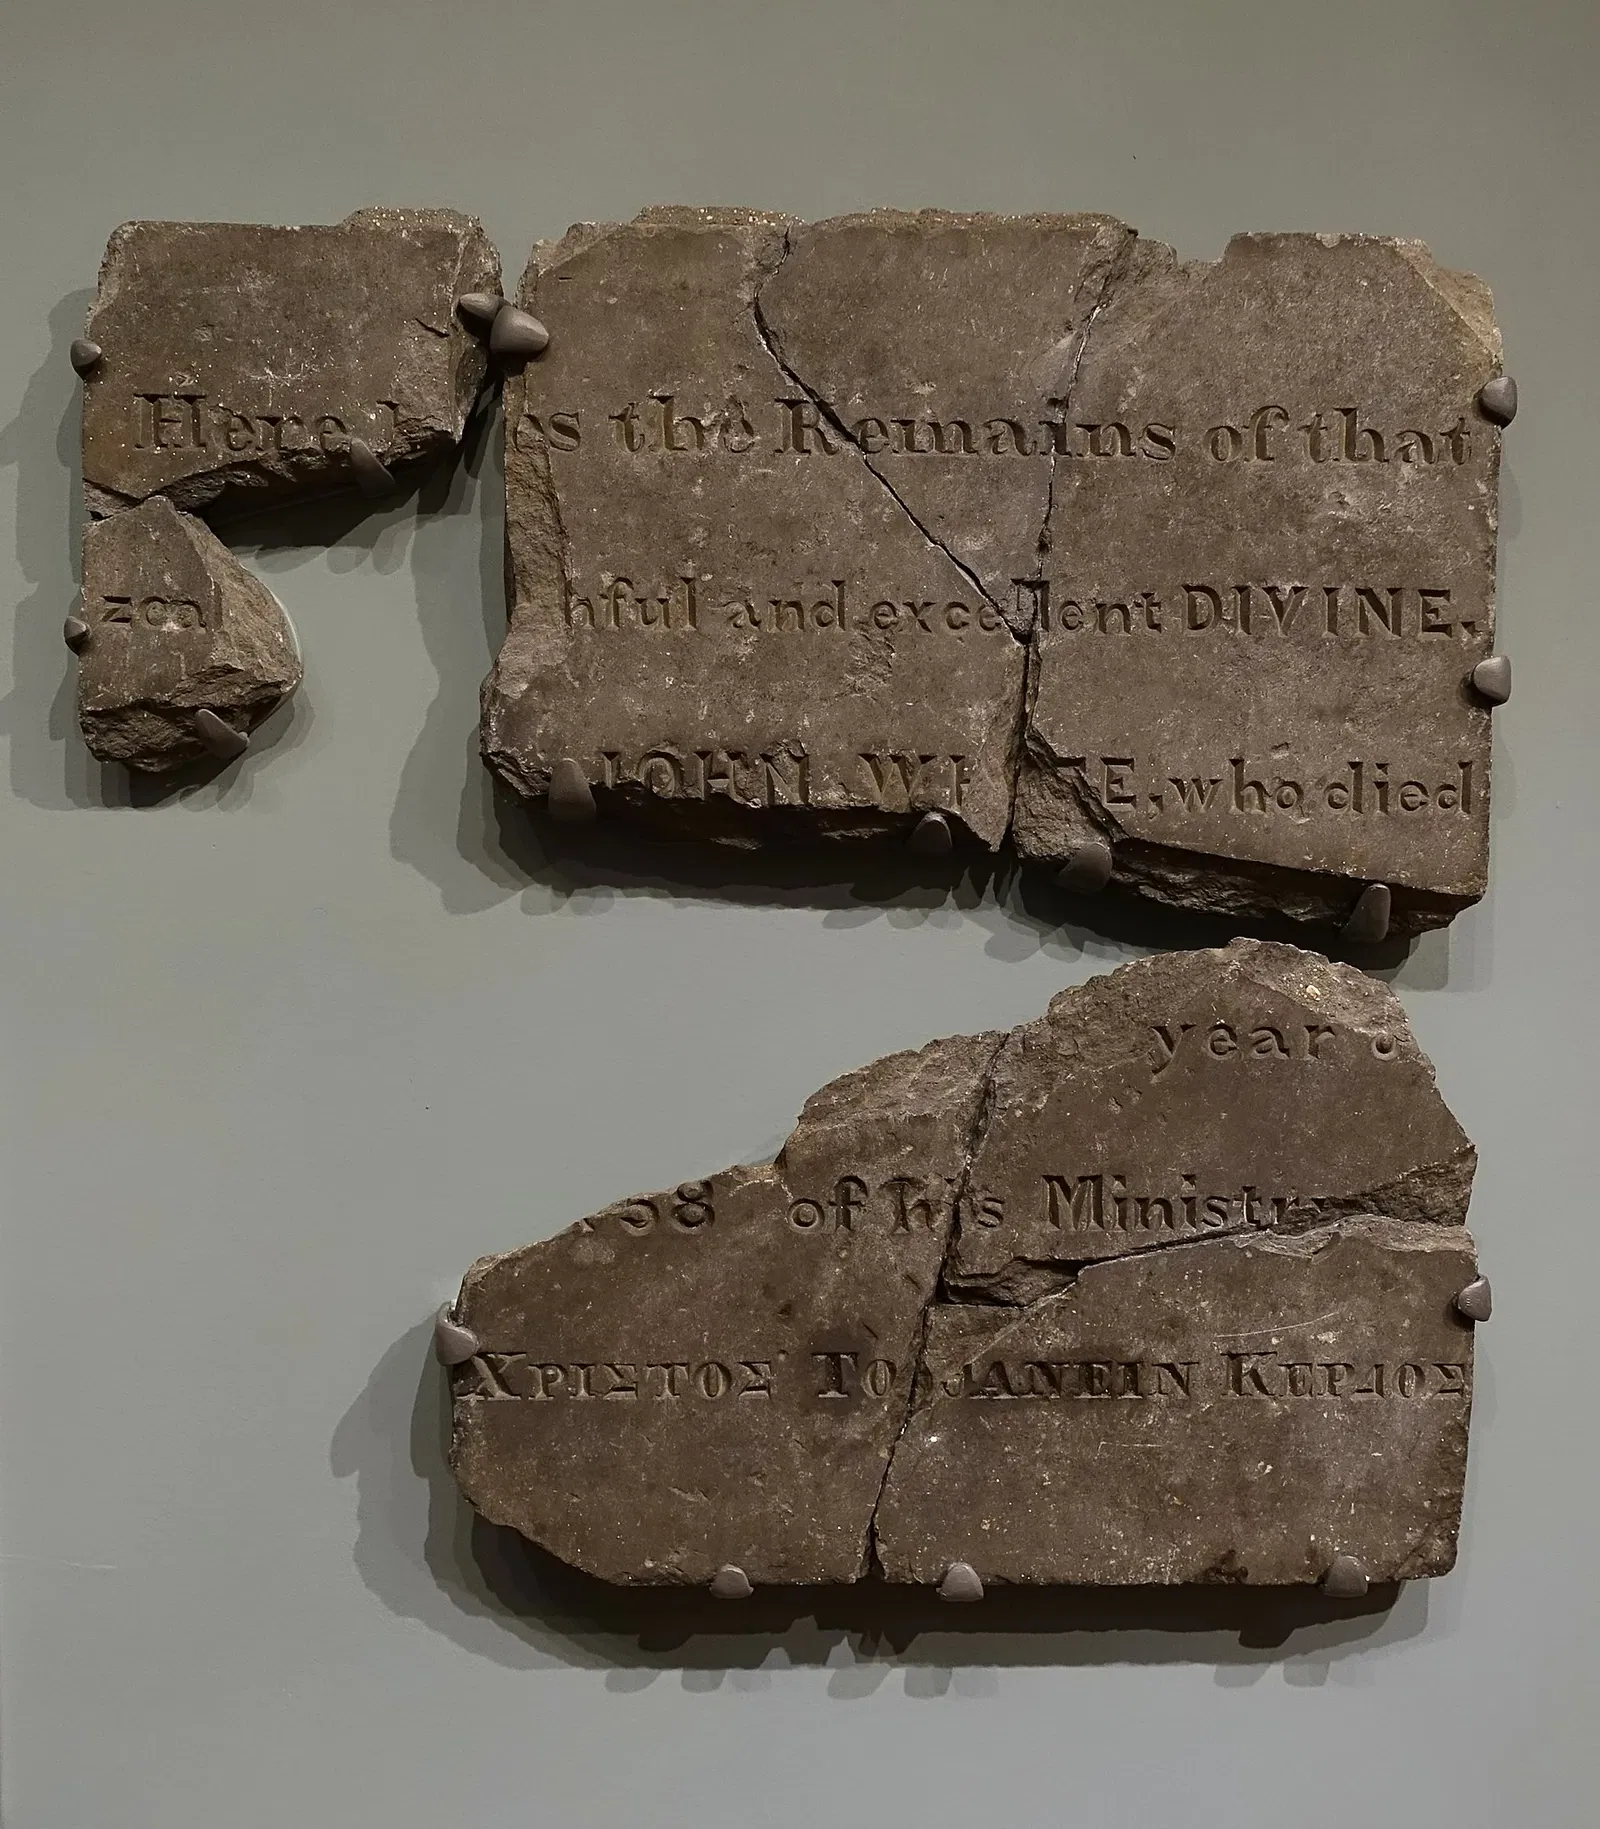 Here lies the Remains of that
zeal hful and excellent DIVINE,
JOHN WH E, who died
year o
38 of his Ministry
ΧΡΙΣΤΟΣ ΤΟ ΑΝΕΙΝ ΚΕΡΔΟΣ